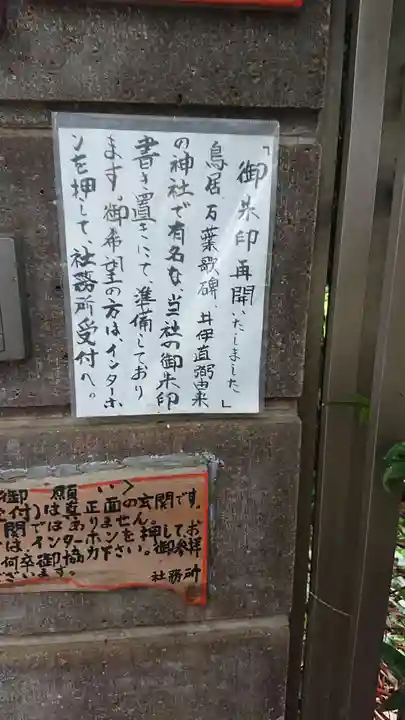 「御朱印再開いたしました」
鳥居、万葉歌碑、井伊直弼由来
の神社で有名な、当社の御朱印
書き置きにて、準備しており
ます。御希望の方は、インターホ
ンを押して、社務所受付へ。
御願い>
付)は真正面の玄関です。
関ではありません。
は、インターホンを押して、お
何卒御協力下さい。御参拝
ございます。
社務所